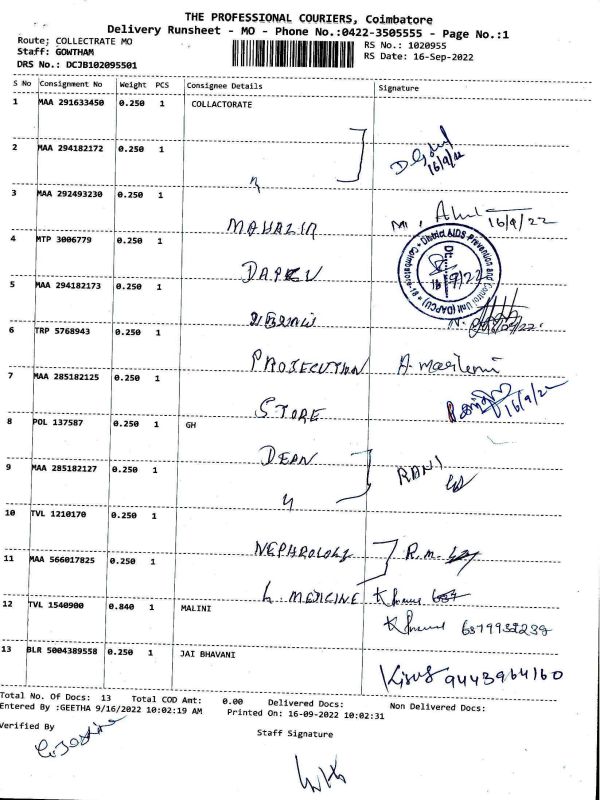 THE PROFESSIONAL COURIERS, Coimbatore
Delivery Runsheet - MO - Phone No.:0422-3505555 - Page No.:1
Route; COLLECTRATE MO
RS No.: 1020955
Staff: GOWTHAM
RS Date: 16-Sep-2022
DRS No.: DCJB102095501
S No Consignment No Weight PCS Consignee Details Signature
1 MAA 291633450 0.250 1 COLLACTORATE
2 MAA 294182172 0.250 1
16/9/22
3 MAA 292493230 0.250 1
MAHALIR 16/9/22
4 MTP 3006779 0.250 1
District AIDS Prevention and Control Unit (DAPCU) Coimbatore-18
5 MAA 294182173 0.250 1
6 TRP 5768943 0.250 1
PROSECUTION
7 MAA 285182125 0.250 1
STORE 16/9/22
8 POL 137587 0.250 1 GH
DEAN RANI
9 MAA 285182127 0.250 1
10 TVL 1210170 0.250 1
NEPHROLOGY R.m.
11 MAA 566017825 0.250 1
MEDICINE
12 TVL 1540900 0.840 1 MALINI
13 BLR 5004389558 0.250 1 JAI BHAVANI
9443964160
Total No. Of Docs: 13 Total COD Amt: 0.00 Delivered Docs: Non Delivered Docs:
Entered By :GEETHA 9/16/2022 10:02:19 AM Printed On: 16-09-2022 10:02:31
Verified By
Staff Signature